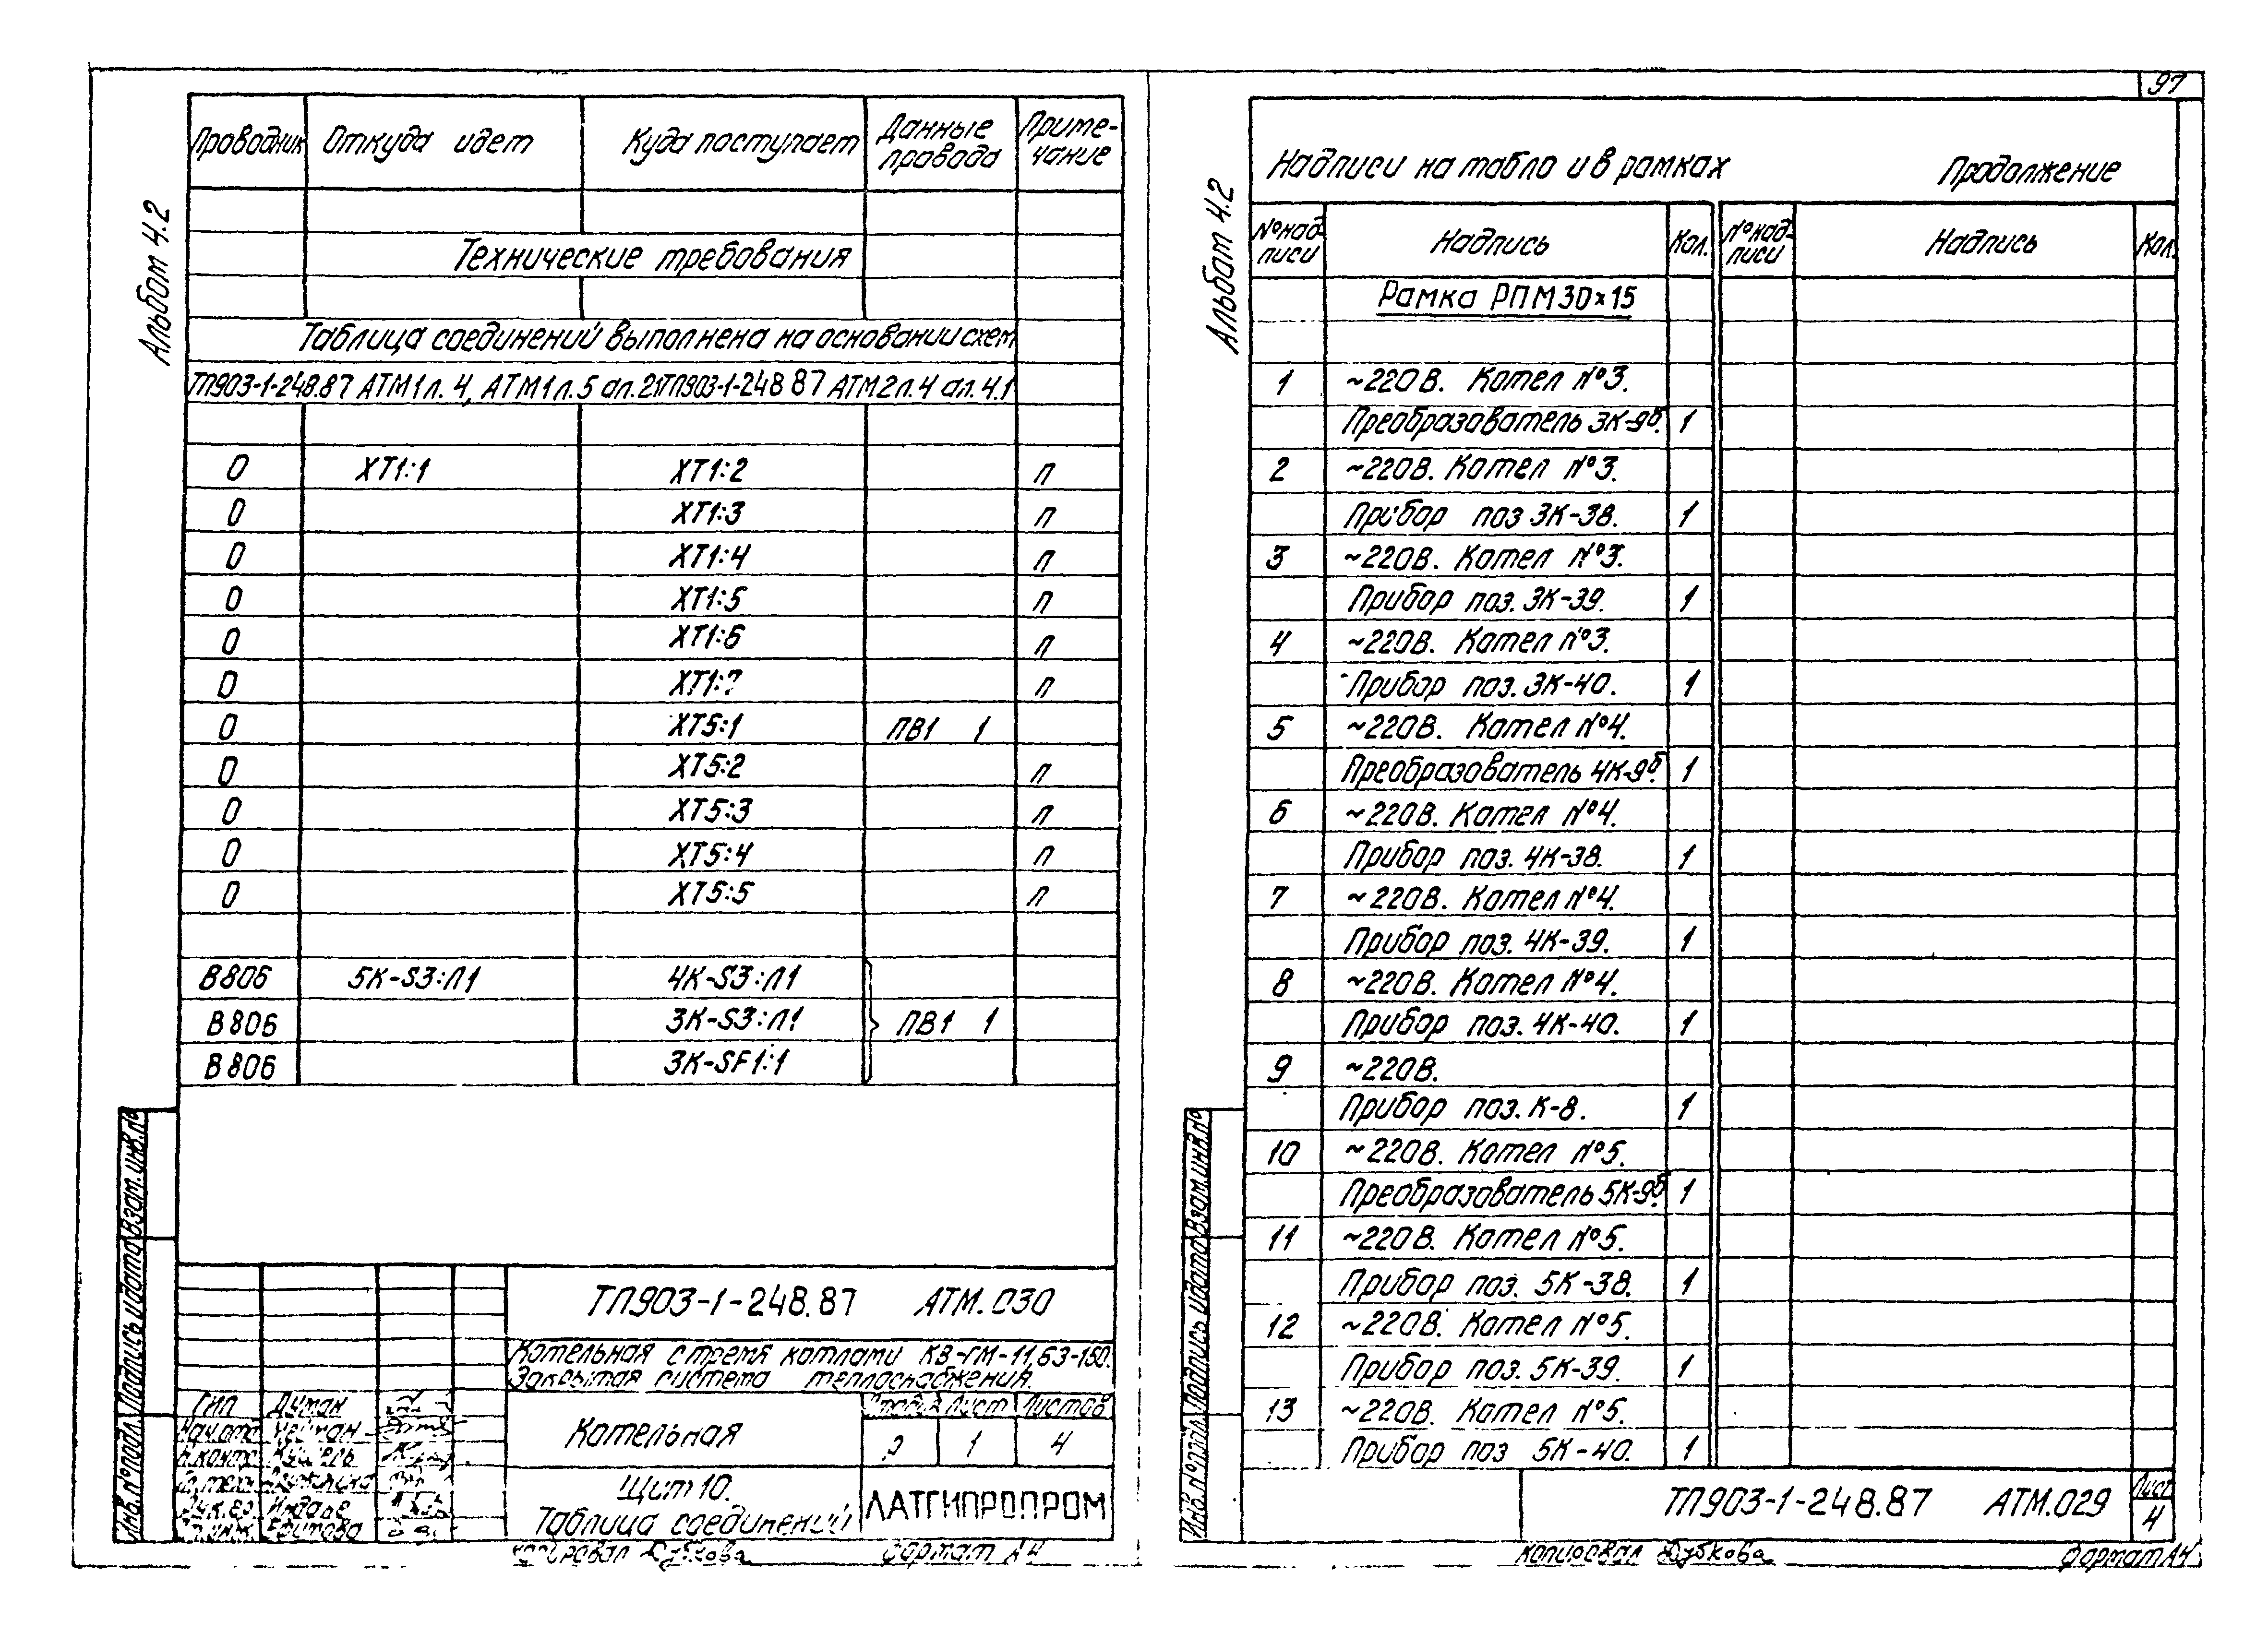 97
Альбом 4.2
Проводник Откуда идет Куда поступает Данные провода Приме-чание
Технические требования
Таблица соединений выполнена на основании схем
ТП903-1-248.87 АТМ1 л. 4, АТМ1 л.5 ал.2 ТП903-1-248 87 АТМ2 л.4 ал.4.1
0 ХТ1:1 ХТ1:2 п
0 ХТ1:3 п
0 ХТ1:4 п
0 ХТ1:5 п
0 ХТ1:6 п
0 ХТ1:7 п
0 ХТ5:1 ПВ1 1
0 ХТ5:2 п
0 ХТ5:3 п
0 ХТ5:4 п
0 ХТ5:5 п
В806 5К-S3:Л1 4К-S3:Л1
В806 3К-S3:Л1 ПВ1 1
В806 3К-SF1:1
Инв.№подл. Подпись и дата Взам.инв.№
ТП903-1-248.87 АТМ.030
Котельная с тремя котлами КВ-ГМ-11,63-150.
Закрытая система теплоснабжения.
ГИП
Нач.отд
Н.контр.
Ефимова
Котельная
Стадия Лист Листов
Р 1 4
Щит 10.
Таблица соединений
ЛАТГИПРОПРОМ
Копировал Дубкова Формат А4
Альбом 4.2
Надписи на табло и в рамках Продолжение
№ над-писи Надпись Кол. № над-писи Надпись Кол.
Рамка РПМ 30×15
1 ~220В. Котел №3.
Преобразователь 3К-9б. 1
2 ~220В. Котел №3.
Прибор поз 3К-38. 1
3 ~220В. Котел №3.
Прибор поз. 3К-39. 1
4 ~220В. Котел №3.
Прибор поз. 3К-40. 1
5 ~220В. Котел №4.
Преобразователь 4К-9б. 1
6 ~220В. Котел №4.
Прибор поз. 4К-38. 1
7 ~220В. Котел №4.
Прибор поз. 4К-39. 1
8 ~220В. Котел №4.
Прибор поз. 4К-40. 1
9 ~220В.
Прибор поз. К-8. 1
10 ~220В. Котел №5.
Преобразователь 5К-9б. 1
11 ~220В. Котел №5.
Прибор поз. 5К-38. 1
12 ~220В. Котел №5.
Прибор поз. 5К-39. 1
13 ~220В. Котел №5.
Прибор поз 5К-40. 1
Инв.№подл. Подпись и дата Взам.инв.№
ТП903-1-248.87 АТМ.029
Лист
4
Копировал Дубкова Формат А4